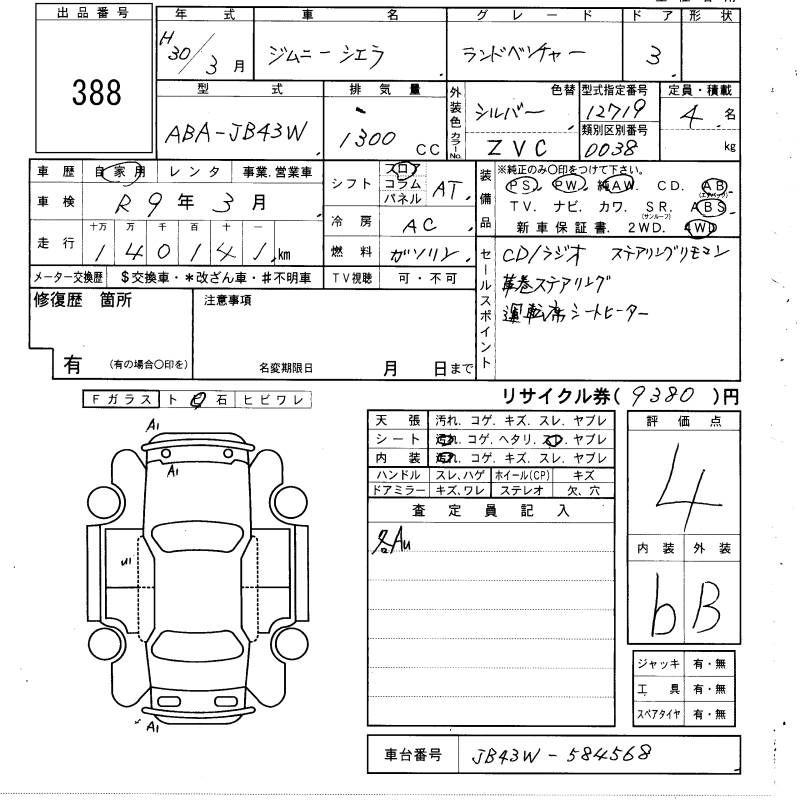 出品番号
388
年式
H30/3月
車名
ジムニーシエラ
グレード
ランドベンチャー
ドア
3
形状
型式
ABA-JB43W
排気量
1300 CC
外装色
色替
シルバー
カラーNo.
ZVC
型式指定番号
12719
類別区別番号
0038
定員・積載
4名
kg
車歴 自家用 レンタ 事業、営業車
車検 R9年3月
走行 十万 万 千 百 十 一
140141km
メーター交換歴 $交換車・*改ざん車・#不明車
シフト フロア コラム パネル AT
冷房 AC
燃料 ガソリン
TV視聴 可・不可
装備品
※純正のみ〇印をつけて下さい。
PS. PW. 純AW. CD. AB.(エアバッグ)
TV. ナビ. カワ. SR.(サンルーフ) ABS
新車保証書. 2WD. 4WD
セールスポイント
CD/ラジオ ステアリングリモコン
革巻ステアリング
運転席シートヒーター
修復歴 箇所
有 (有の場合〇印を)
注意事項
名変期限日 月 日まで
リサイクル券(9380)円
Fガラス トビ石 ヒビワレ
A1
A1
U1
A1
天張 汚れ. コゲ. キズ. スレ. ヤブレ
シート 汚れ. コゲ. ヘタリ. スレ. ヤブレ
内装 汚れ. コゲ. キズ. スレ. ヤブレ
ハンドル スレ、ハゲ ホイール(CP) キズ
ドアミラー キズ、ワレ ステレオ 欠、穴
査定員記入
各Au
評価点
4
内装 外装
b B
ジャッキ 有・無
工具 有・無
スペアタイヤ 有・無
車台番号 JB43W-584568